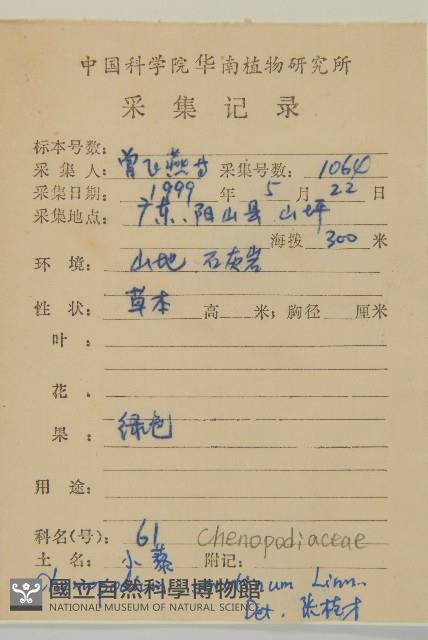 中国科学院华南植物研究所
采集记录
标本号数:
采集人: 曾飞燕等 采集号数: 1064
采集日期: 1999 年 5 月 22 日
采集地点: 广东、阳山县 山坪
海拨 300 米
环境: 山地 石灰岩
性状: 草本 高 米; 胸径 厘米
叶:
花:
果: 绿色
用途:
科名(号): 61 Chenopodiaceae
土名: 小藜 附记:
Linn.
Det. 张桂才
國立自然科學博物館
NATIONAL MUSEUM OF NATURAL SCIENCE